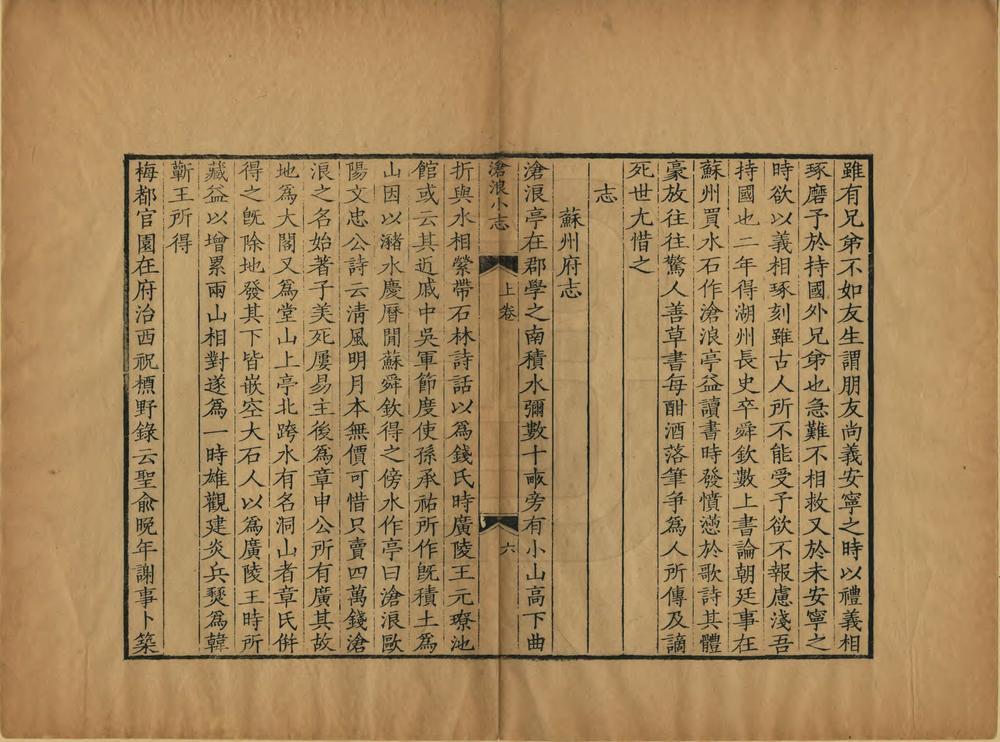 雖有兄弟不如友生謂朋友尚義安寧之時以禮義相
琢磨予於持國外兄弟也急難不相救又於未安寧之
時欲以義相琢刻雖古人所不能受予欲不報慮淺吾
持國也二年得湖州長史卒舜欽數上書論朝廷事在
蘇州買水石作滄浪亭益讀書時發憤懣於歌詩其體
豪放往往驚人善草書每酣酒落筆爭為人所傳及謫
死世尤惜之
志
蘇州府志
滄浪亭在郡學之南積水彌數十畝旁有小山高下曲
滄浪小志
上卷
六
折與水相縈帶石林詩話以為錢氏時廣陵王元璙池
館或云其近戚中吳軍節度使孫承祐所作既積土為
山因以瀦水慶曆閒蘇舜欽得之傍水作亭曰滄浪歐
陽文忠公詩云清風明月本無價可惜只賣四萬錢滄
浪之名始著子美死屢易主後為章申公所有廣其故
地為大閣又為堂山上亭北跨水有名洞山者章氏併
得之既除地發其下皆嵌空大石人以為廣陵王時所
藏益以增累兩山相對遂為一時雄觀建炎兵燹為韓
蘄王所得
梅都官園在府治西祝櫄野錄云聖俞晚年謝事卜築